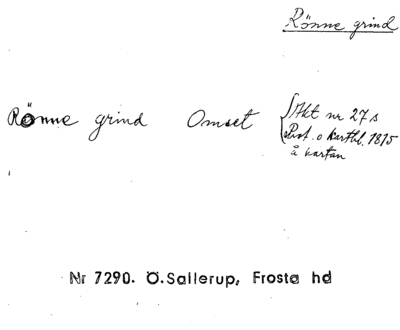 Rönne grind
Rönne grind Omset
Akt nr 27 s
Prot. o kartbl. 1815
å kartan
Nr 7290. Ö.Sallerup, Frosta hd